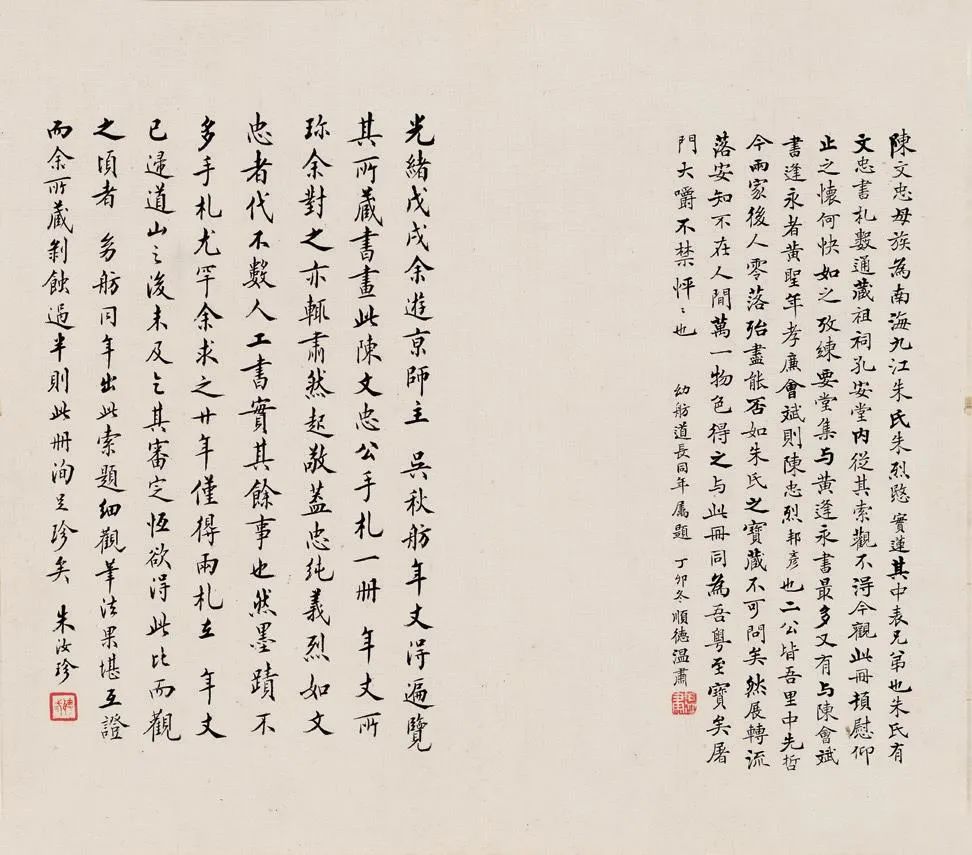 陳文忠母族為南海九江朱氏朱烈愍實蓮其中表兄弟也朱氏有
文忠書札數通藏祖祠孔安堂內從其索觀不得今觀此冊頓慰仰
止之懷何快如之攷練要堂集与黃逢永書最多又有与陳會斌
書逢永者黃聖年孝廉會斌則陳忠烈邦彥也二公皆吾里中先哲
今兩家後人零落殆盡能否如朱氏之寶藏不可問矣然展轉流
落安知不在人間萬一物色得之与此冊同為吾粵至寶矣屠
門大嚼不禁怦〻也
幼舫道長同年属題 丁卯冬順德温肅
光緒戊戌余遊京師主 吳秋舫年丈得遍覽
其所藏書畫此陳文忠公手札一冊 年丈所
珎余對之亦輒肅然起敬蓋忠純義烈如文
忠者代不數人工書實其餘事也然墨蹟不
多手札尤罕余求之廿年僅得兩札在 年丈
已歸道山之後未及乞其審定恆欲得此比而觀
之頃者 幼舫同年出此索題細觀筆法果堪互證
而余所藏剝蝕過半則此冊洵足珍矣 朱汝珍